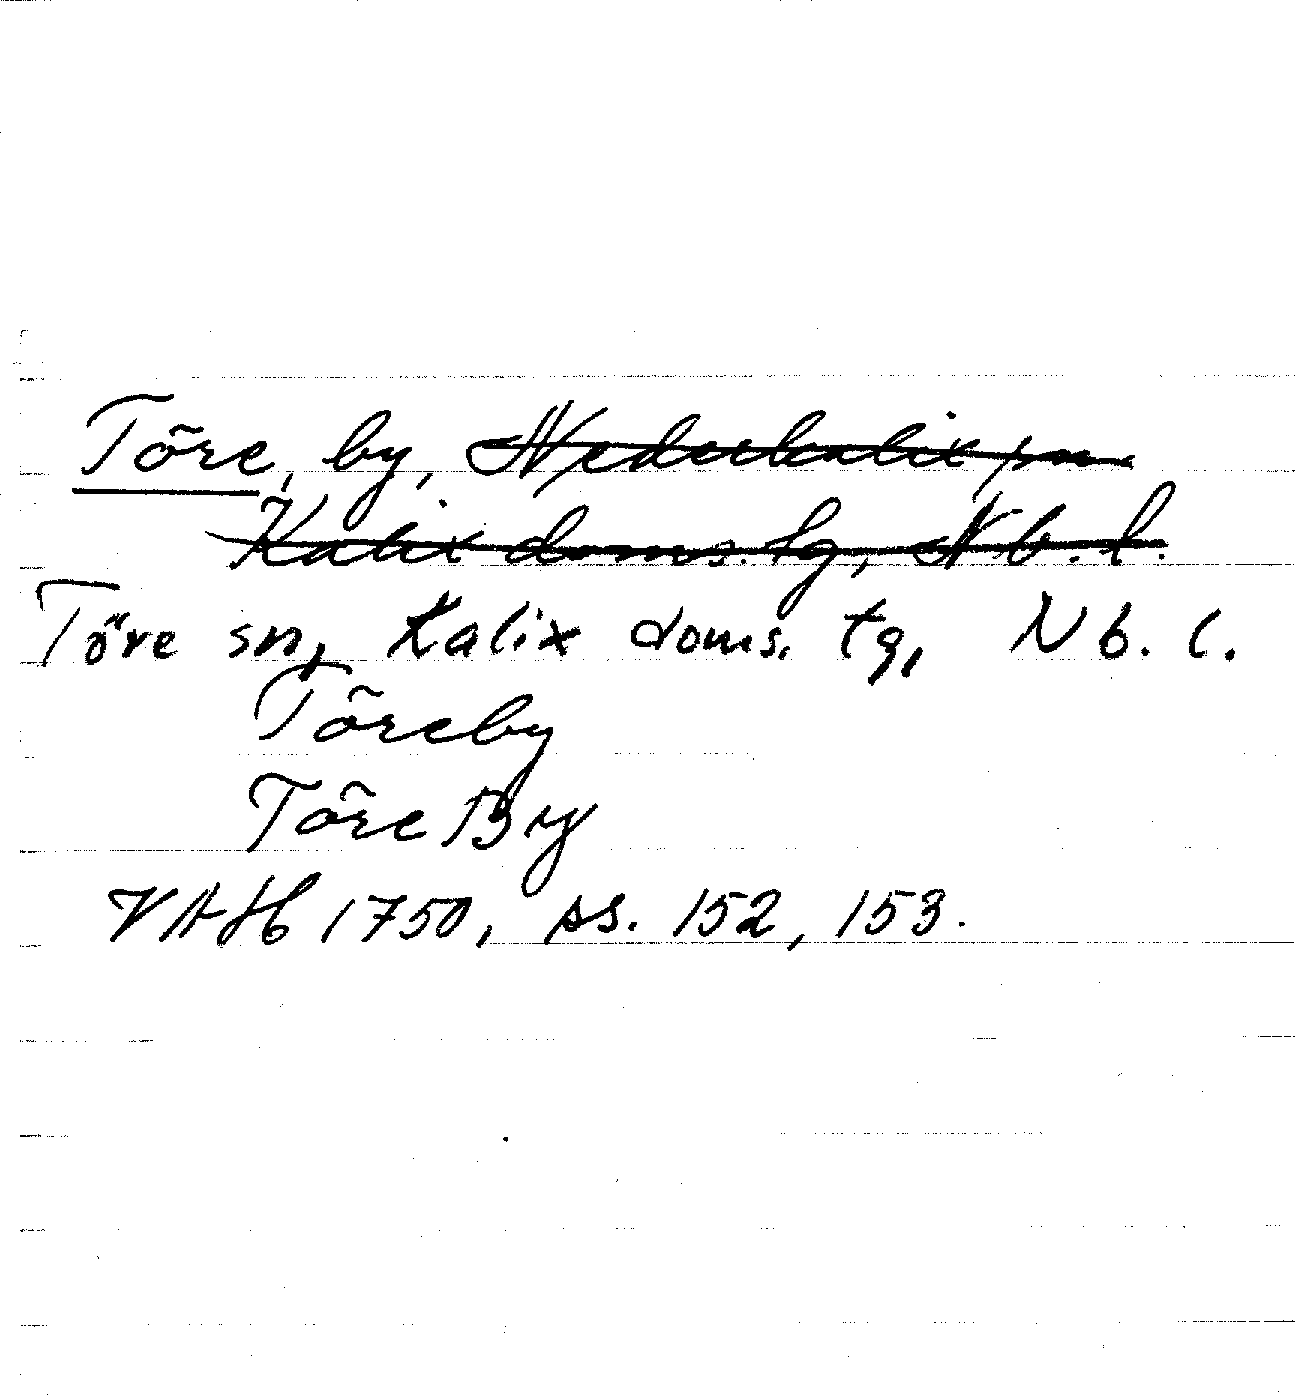 Töre, by, Nederkalix sn
Kalix doms. tg, Nb. l.
Töre sn, Kalix doms. tg, Nb. l.
Töreby
Töre By
VAH 1750, ss. 152, 153.